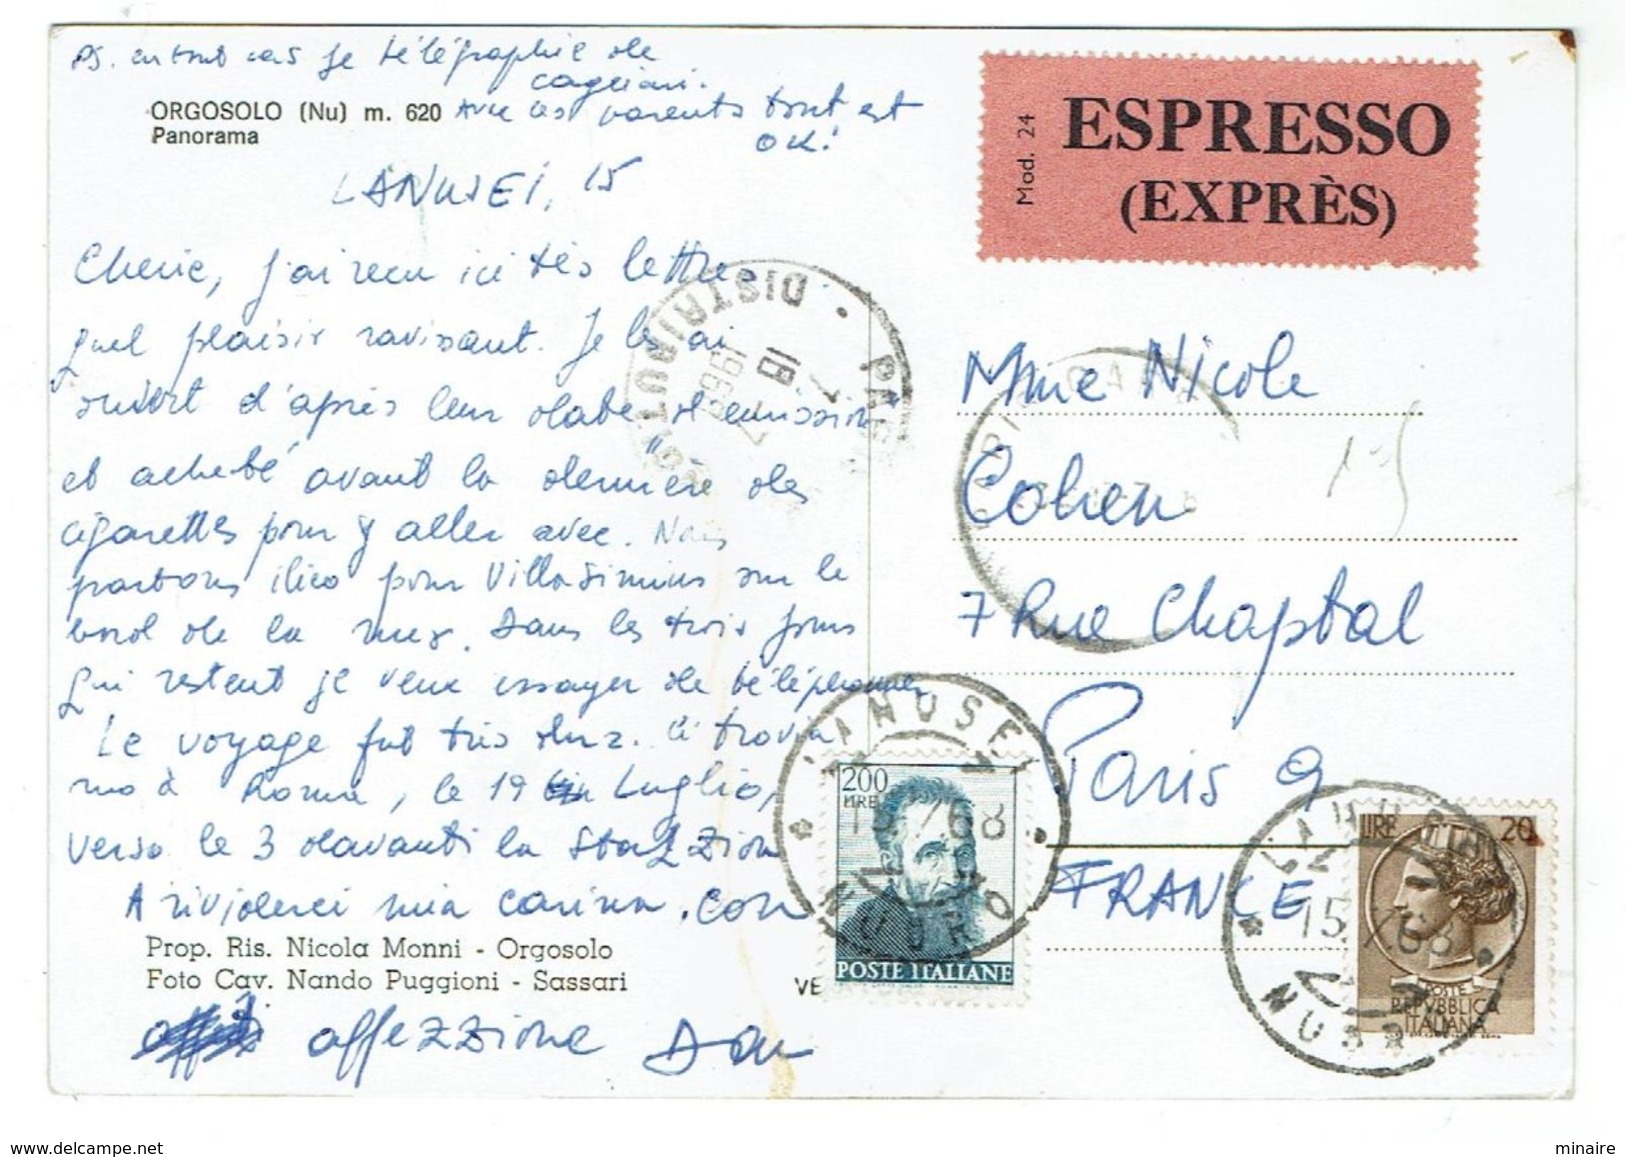 PS. en tout cas je télégraphie de
cagliari.
ORGOSOLO (Nu) m. 620 Avec les parents tout est
Panorama
OK!
LANUSEI, 15
Cherie, j'ai recu ici tes lettres
quel plaisir ravissant. Je les ai
ouvert d'après leur date d'emission
et acheté avant la dernière des
cigarettes pour y aller avec. Nous
partons illico pour Villasimius sur le
bord de la mer. Dans les trois jours
qui restent je veux essayer de téléphoner
Le voyage fut très dur. Ci trovia
mo a Roma, le 19 Luglio,
verso le 3 davanti la Stazzione
A rivederci mia carina, con
Prop. Ris. Nicola Monni - Orgosolo
Foto Cav. Nando Puggioni - Sassari
affezzione Dan
VE
ESPRESSO
(EXPRÈS)
Mod. 24
DISTRIBUTION
PARIS
18
7
1968
Mme Nicole
Cohen
7 Rue Chaptal
Paris 9
FRANCE
LANUSEI
15.7.68
NUORO
200
LIRE
POSTE ITALIANE
LANUSEI
15.7.68
NUORO
LIRE 20
POSTE
REPVBBLICA
ITALIANA
minaire
www.delcampe.net